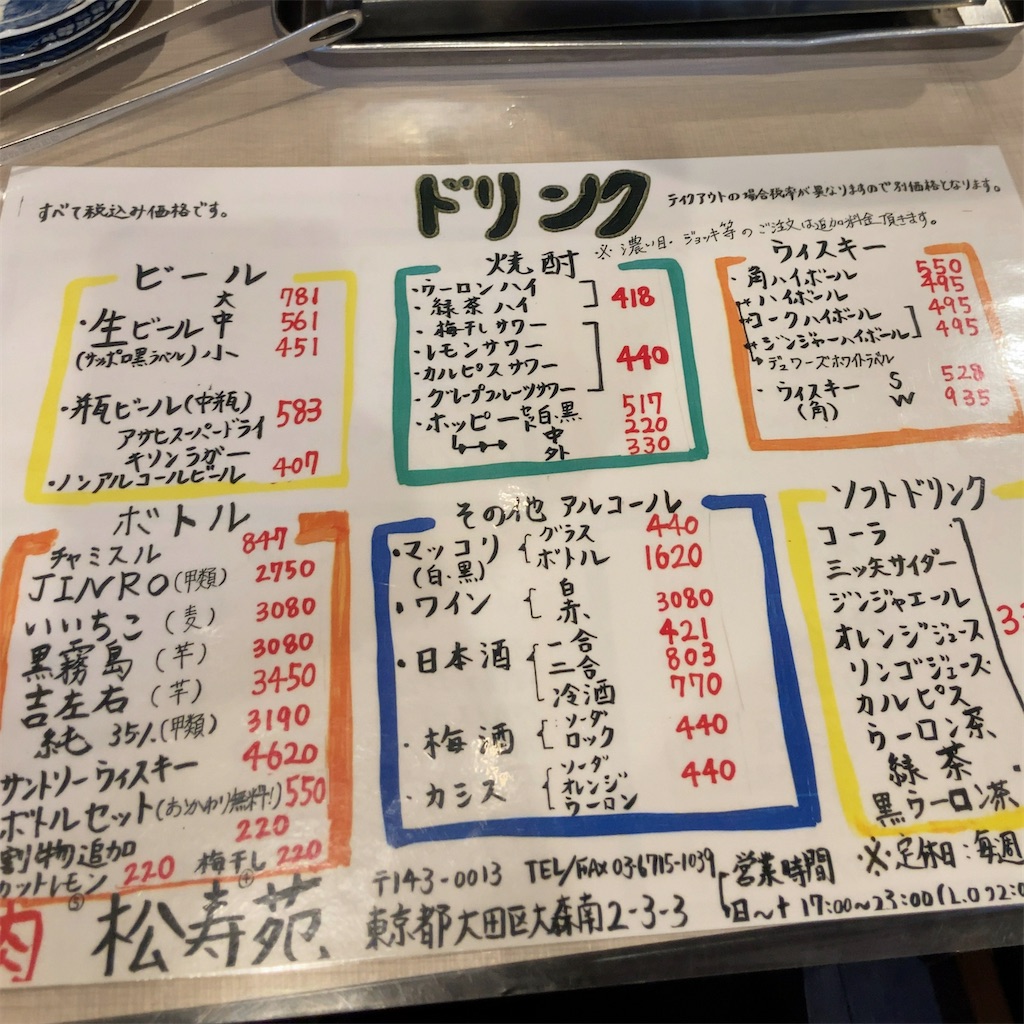 すべて税込み価格です。
ドリンク
テイクアウトの場合税率が異なりますので別価格となります。
※濃い目・ジョッキ等のご注文は追加料金頂きます。
ビール
・生ビール 大 781
中 561
(サッポロ黒ラベル) 小 451
・瓶ビール(中瓶) 583
アサヒスーパードライ
キリンラガー
・ノンアルコールビール 407
焼酎
・ウーロンハイ
・緑茶ハイ 418
・梅干しサワー
・レモンサワー
・カルピスサワー 440
・グレープフルーツサワー
・ホッピーセット白・黒 517
中 220
外 330
ウィスキー
・角ハイボール 550
・ハイボール 495
・コークハイボール 495
・ジンジャーハイボール 495
デュワーズホワイトラベル
・ウィスキー S 528
(角) W 935
ボトル
チャミスル 847
JINRO(甲類) 2750
いいちこ(麦) 3080
黒霧島(芋) 3080
吉左右(芋) 3450
純 35%(甲類) 3190
サントリーウィスキー 4620
ボトルセット(おかわり無料!) 550
割物追加 220
カットレモン 220 梅干し 220
⑤ ④
その他アルコール
・マッコリ グラス 440
(白・黒) ボトル 1620
・ワイン 白
赤 3080
・日本酒 一合 421
二合 803
冷酒 770
・梅酒 ソーダ
ロック 440
・カシス ソーダ
オレンジ 440
ウーロン
ソフトドリンク
コーラ
三ッ矢サイダー
ジンジャエール
オレンジジュース
リンゴジュース
カルピス
ウーロン茶
緑茶
黒ウーロン茶
肉 松寿苑
〒143-0013 TEL/FAX 03-6715-1039
東京都大田区大森南2-3-3
営業時間
日〜土 17:00〜23:00(L.O 22:0
※定休日:毎週